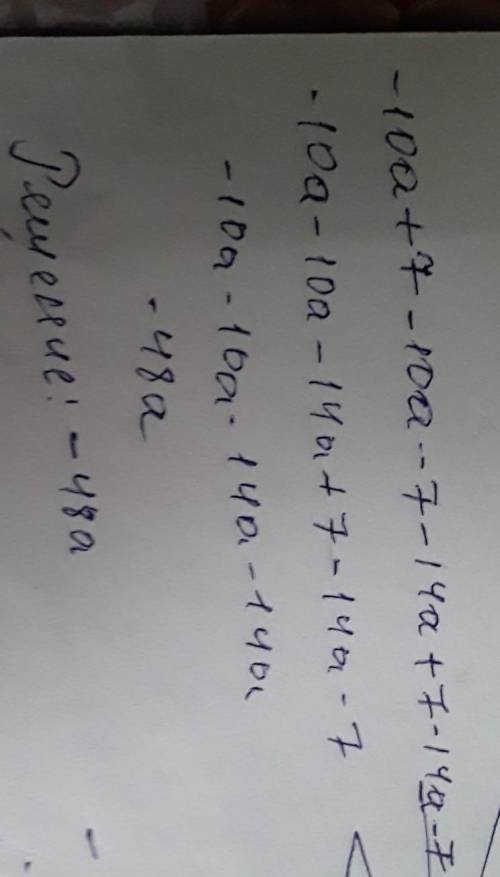 -10a+7-10a-7-14a+7-14a-7
-10a-10a-14a+7-14a-7
-10a-10a-14a-14a
-48a
Решение: -48a